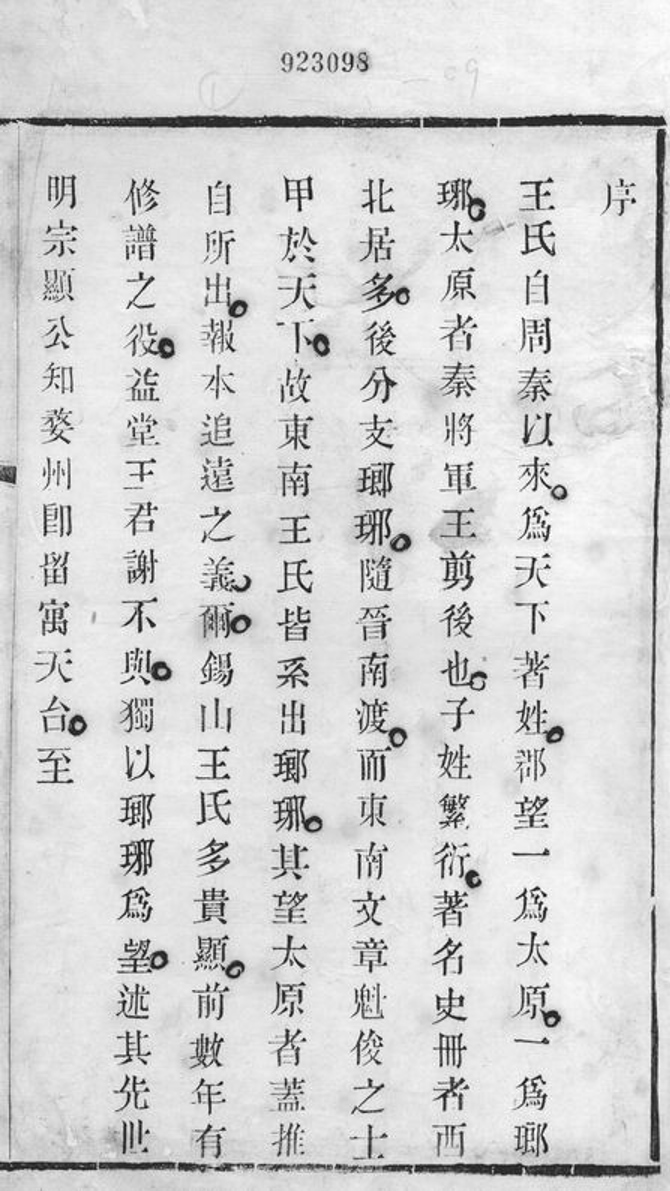 923098
序
王氏自周秦以來。爲天下著姓。郡望一爲太原。一爲瑯
琊。太原者秦將軍王剪後也。子姓繁衍。著名史冊者西
北居多。後分支瑯琊。隨晉南渡。而東南文章魁俊之士
甲於天下。故東南王氏皆系出瑯琊。其望太原者蓋推
自所出。報本追遠之義爾。錫山王氏多貴顯。前數年有
修譜之役。益堂王君謝不與。獨以瑯琊爲望。述其先世
明宗顯公知婺州卽留寓天台。至